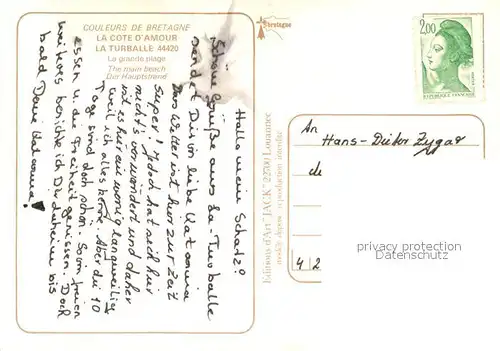 COULEURS DE BRETAGNE
LA COTE D'AMOUR
LA TURBALLE 44420
La grande plage
The main beach
Der Hauptstrand
Hallo mein Schatz!
Schöne Grüße aus La-Turballe
sendet Dir in liebe Katarina
Das Wetter ist hier zur Zeit
super! Jedoch hat sich hier
nichts verwandert und daher
ist es hier ein wenig langweilig
weil ich alles kenne. Aber die 10
Tage sind doch schön. Sonn freien
essen u. die Freiheit genissen. Doch
weiteres berichte ich Dir daheim bis
bald Deine Katarina!
Editions d'Art "JACK" 22700 Louannec
modèle déposé - reproduction interdite
Bretagne
2,00
REPUBLIQUE FRANÇAISE
An
Hans-Dieter Zygar
de
4 2
privacy protection
Datenschutz